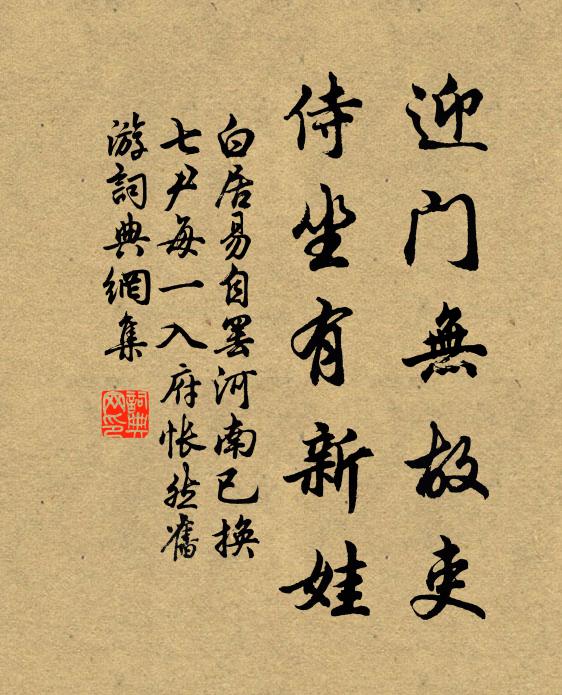 迎門無故吏
侍坐有新娃
白居易自罢河南已换
七尹每一入府怅然舊
游詞典網集
詞典
网印